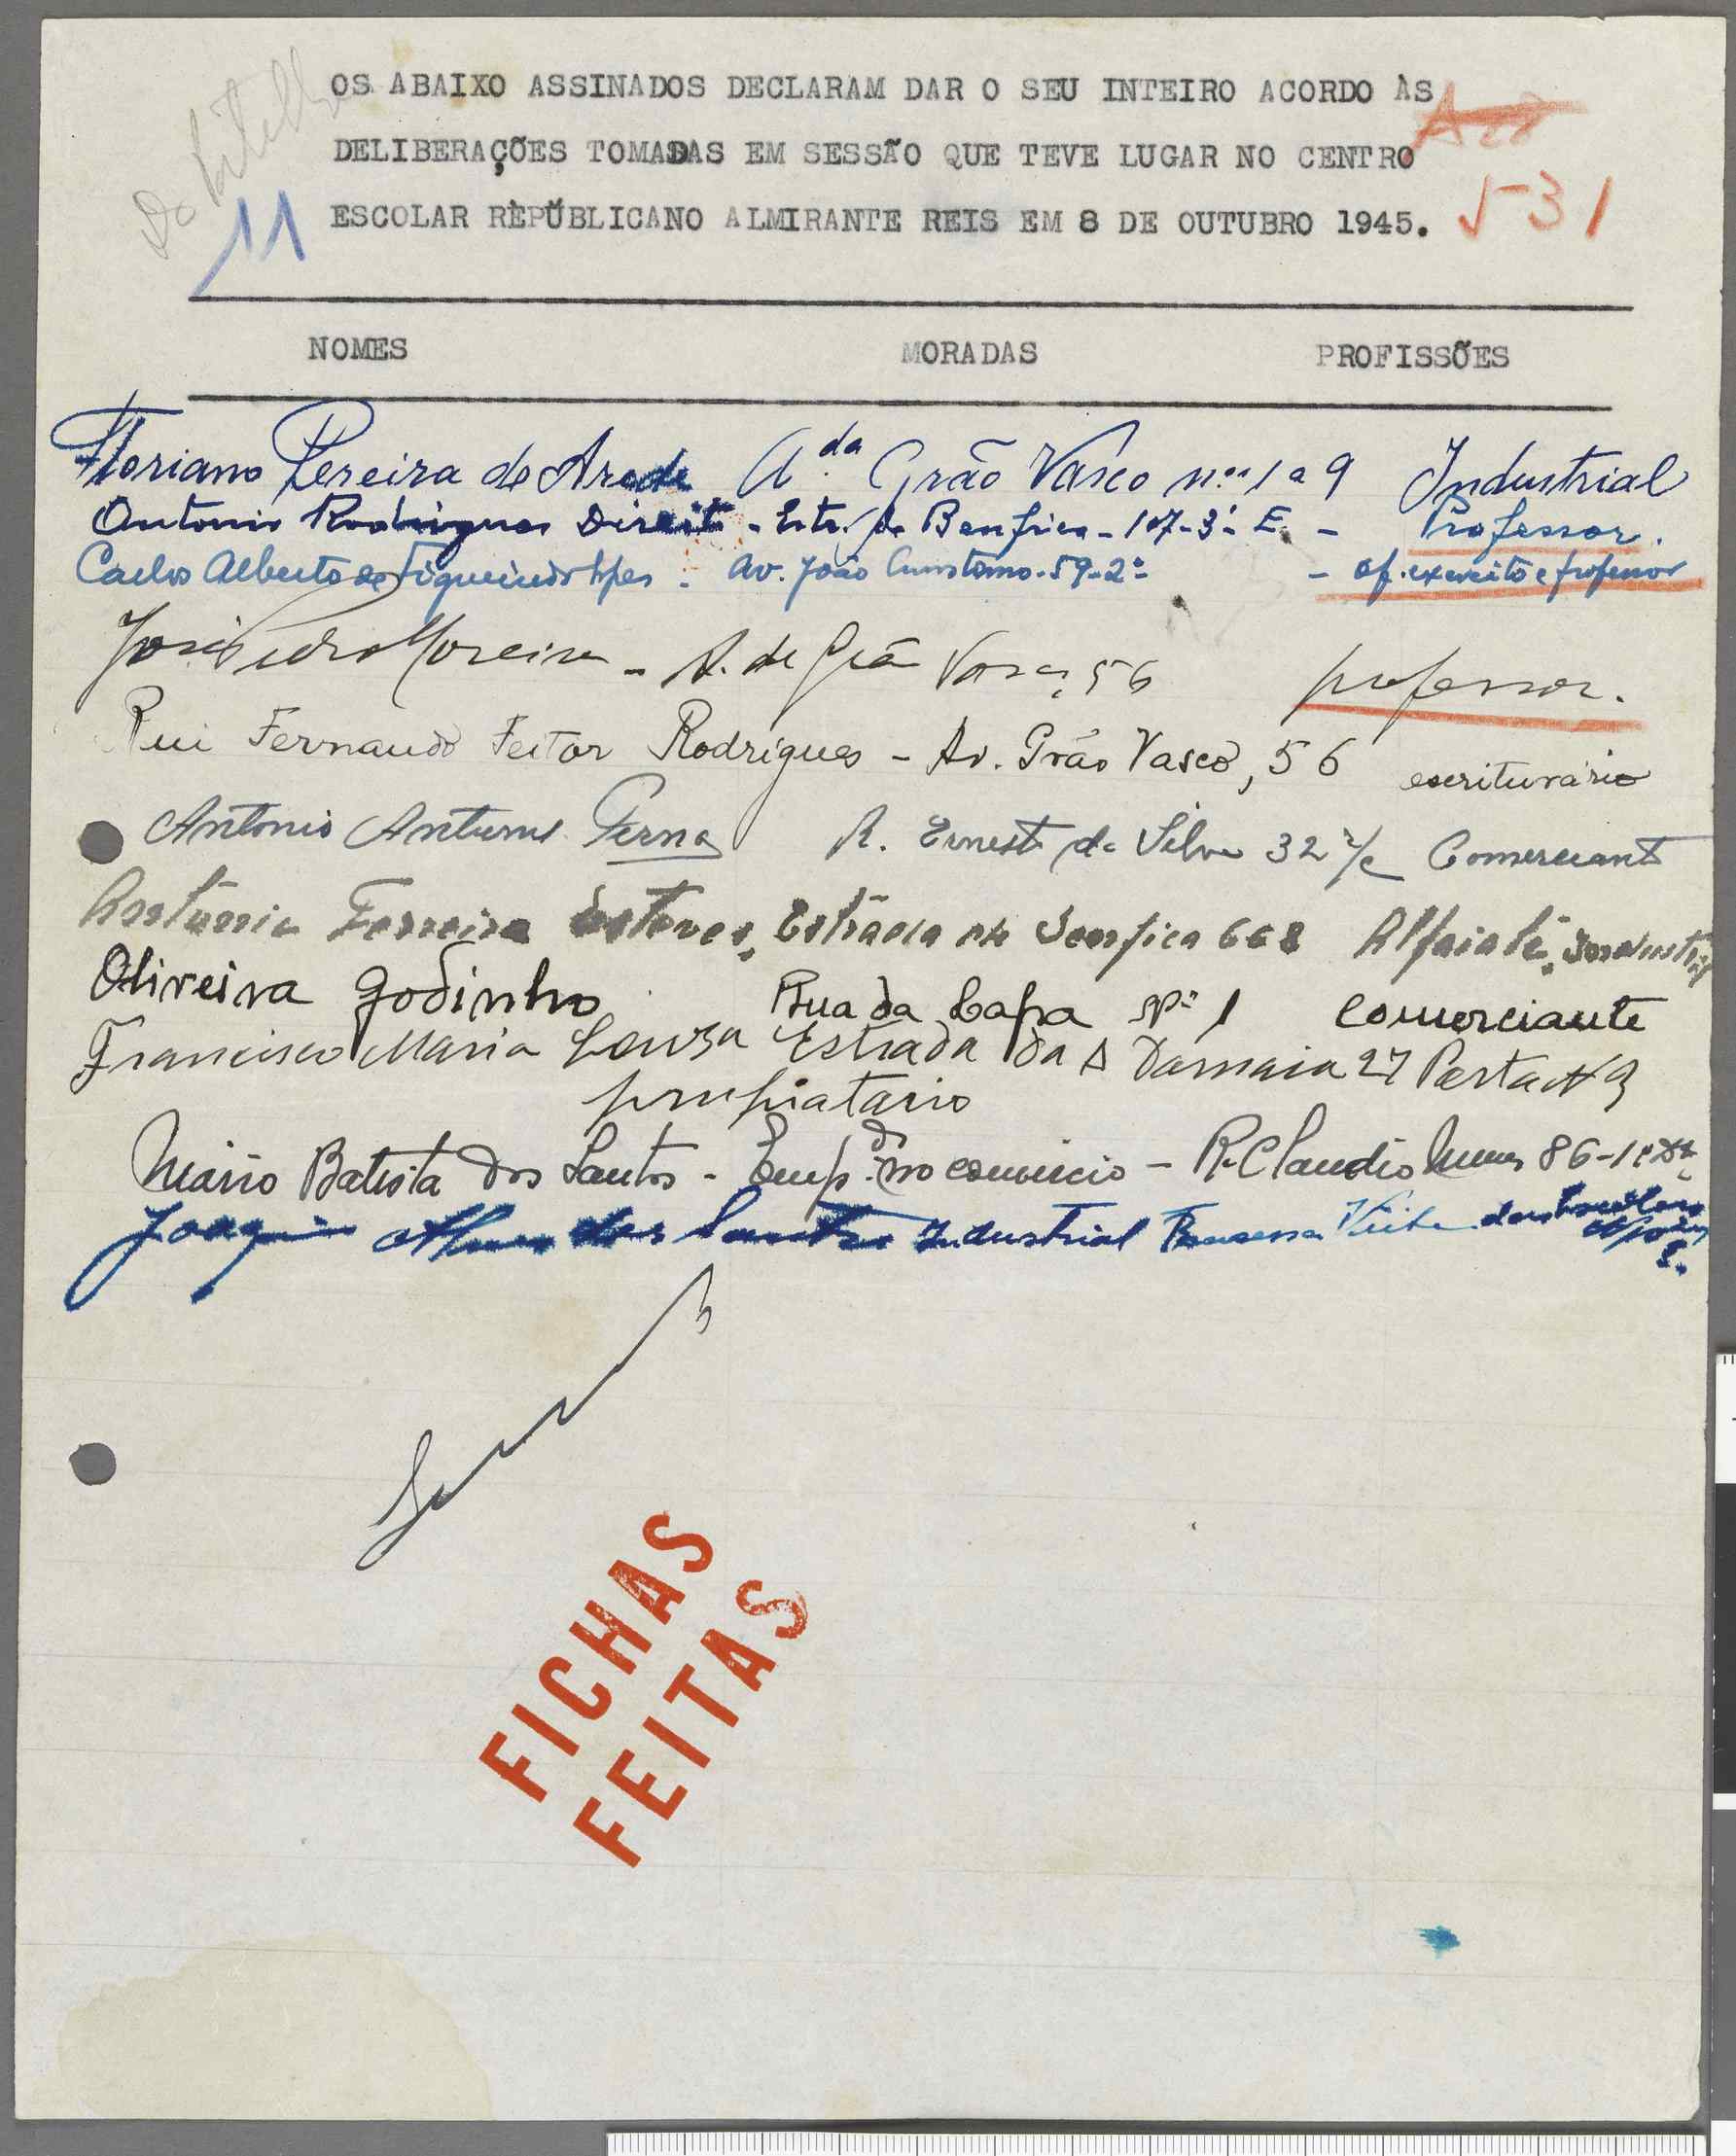 OS ABAIXO ASSINADOS DECLARAM DAR O SEU INTEIRO ACORDO ÀS
DELIBERAÇÕES TOMADAS EM SESSÃO QUE TEVE LUGAR NO CENTRO
11 ESCOLAR REPÚBLICANO ALMIRANTE REIS EM 8 DE OUTUBRO 1945. 531
NOMES MORADAS PROFISSÕES
Floriano Pereira de Arede A.da Grão Vasco n.os 1 a 9 Industrial
Antonio Rodrigues Direito - Estr. de Benfica - 107-3º E. - Professor.
Carlos Alberto de Figueiredo Lopes - Av. João Crisóstomo - 59-2º - of. exercito e professor
José Pedro Moreira - A. de Grão Vasco, 56 professor.
Rui Fernando Feitor Rodrigues - Av. Grão Vasco, 56 escriturário
Antonio Antunes Perna R. Ernesto da Silva 32 r/c Comerciante
António Ferreira Esteves, Estrada de Benfica 668 Alfaiate, Industrial
Oliveira Godinho Rua da Capa Nº 1 Comerciante
Francisco Maria Souza Estrada da Damaia 27 Porta N 9
propiatario
Mário Batista dos Santos - Emp.do no comércio - R. Claudio Nunes 86-1º Dt.
Joaquim dos Santos Industrial
FICHAS
FEITAS